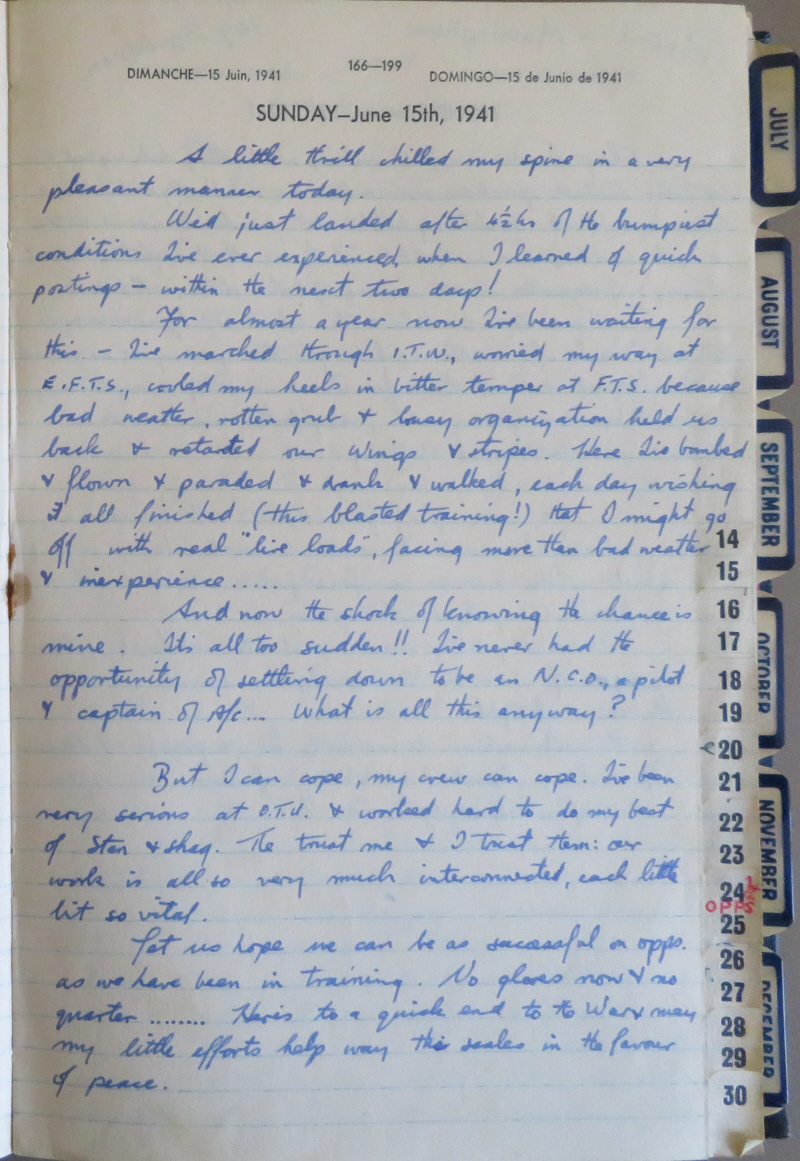 166—199
DIMANCHE—15 Juin, 1941
DOMINGO—15 de Junio de 1941
SUNDAY—June 15th, 1941
A little thrill chilled my spine in a very
pleasant manner today.
We'd just landed after 4½ hrs of the bumpiest
conditions I've ever experienced, when I learned of quick
postings – within the next two days!
For almost a year now I've been waiting for
this. – I've marched through I.T.W., worried my way at
E.F.T.S., cooled my heels in bitter temper at F.T.S. because
bad weather, rotten grub & lousy organization held us
back & retarded our wings & stripes. Here I've bombed
& flown & paraded & drank & walked, each day wishing
it all finished (this blasted training!) that I might go
off with real "live loads", facing more than bad weather
& inexperience......
And now the shock of knowing the chance is
mine. It's all too sudden!! I've never had the
opportunity of settling down to be an N.C.O., a pilot
& captain of A/c... What is all this anyway?
But I can cope, my crew can cope. I've been
very serious at O.T.U. & worked hard to do my best
of Stan & Shag. The trust me & I trust them: our
work is all so very much interconnected, each little
bit so vital.
Let us hope we can be as successful on opps.
as we have been in training. No gloves now & no
quarter ......... Here's to a quick end to the War & may
my little efforts help way the scales in the favour
of peace.
JULY
AUGUST
SEPTEMBER
OCTOBER
NOVEMBER
DECEMBER
14
15
16
17
18
19
20
21
22
23
24
OPPS
25
26
27
28
29
30